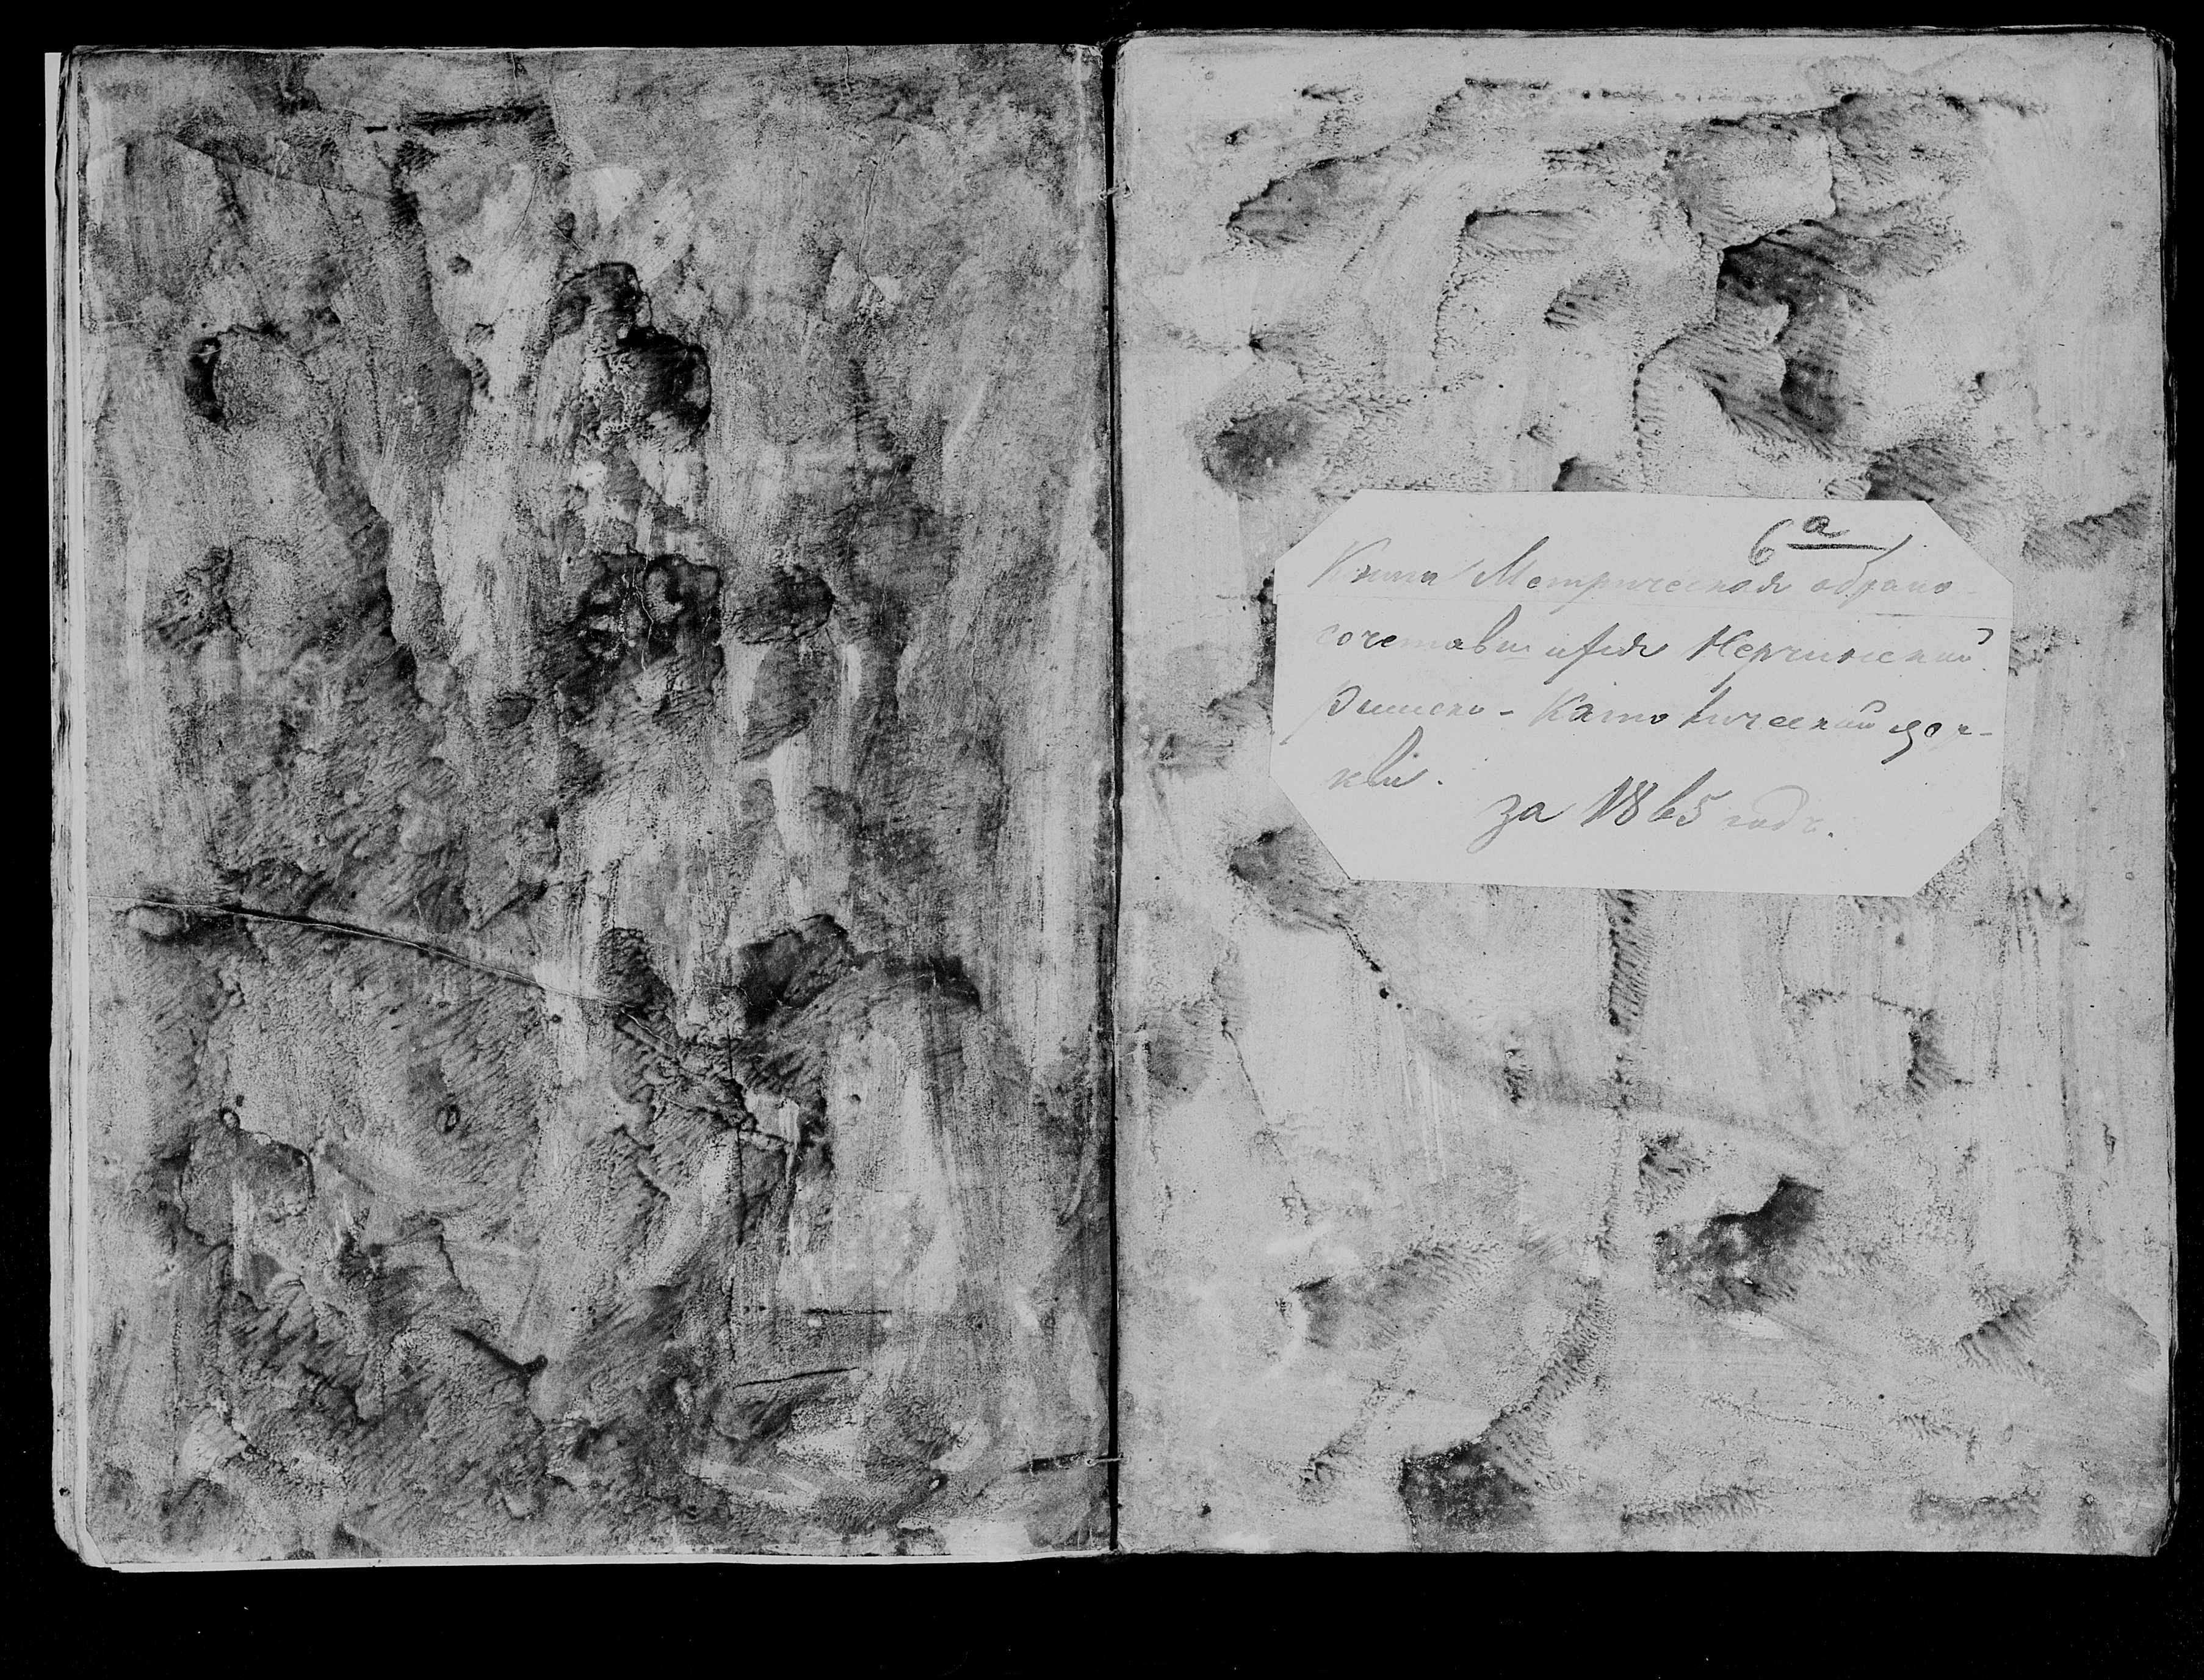 6 а
Книга Метрическая обрако
сочетавшихся Нерчинской
Римско-Католической цер-
кви.
за 1865 годъ.